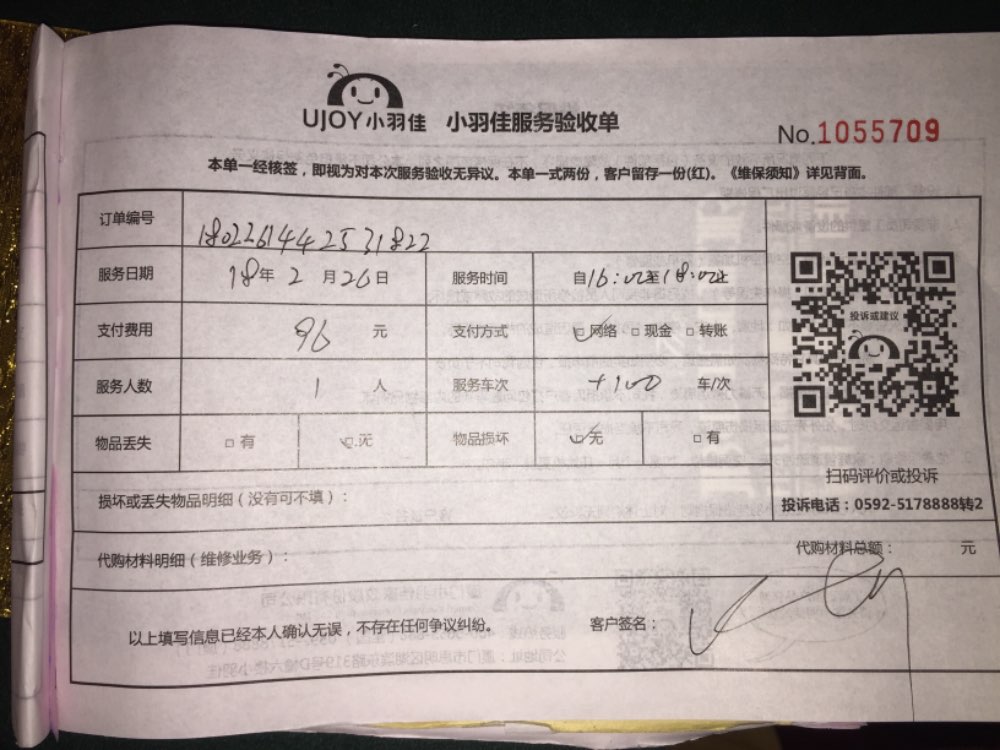 UJOY小羽佳 小羽佳服务验收单
No.1055709
本单一经核签，即视为对本次服务验收无异议。本单一式两份，客户留存一份(红)。《维保须知》详见背面。
订单编号 1802261442531822
服务日期 18年 2 月 26日 服务时间 自16:00至18:00止
支付费用 96 元 支付方式 网络 □ 现金 □ 转账
服务人数 1 人 服务车次 +100 车/次
物品丢失 □ 有 无 物品损坏 无 □ 有
投诉或建议
扫码评价或投诉
投诉电话：0592-5178888转2
损坏或丢失物品明细（没有可不填）：
代购材料明细（维修业务）： 代购材料总额： 元
以上填写信息已经本人确认无误，不存在任何争议纠纷。 客户签名：